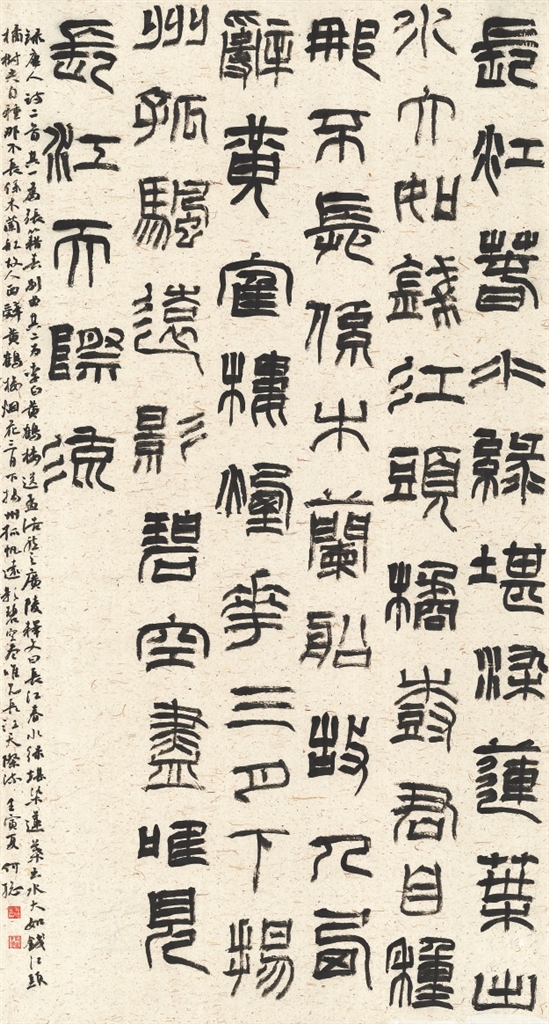 長江春水綠堪染蓮葉出
水大如錢江頭橘樹君自種
那不長係木蘭船故人西
辭黃鶴樓煙花三月下揚
州孤帆遠影碧空盡唯見
長江天際流
錄唐人詩二首其一為張籍春別曲其二為李白黃鶴樓送孟浩然之廣陵釋文曰長江春水綠堪染蓮葉出水大如錢江頭
橘樹君自種那不長係木蘭船故人西辭黃鶴樓烟花三月下揚州孤帆遠影碧空盡唯見長江天際流 壬寅夏 何